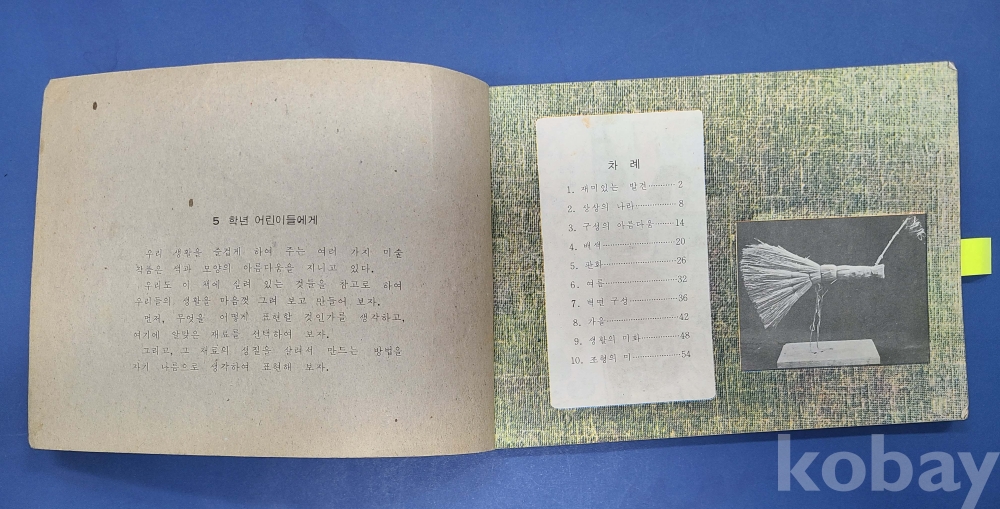 5 학년 어린이들에게
우리 생활을 즐겁게 하여 주는 여러 가지 미술
작품은 색과 모양의 아름다움을 지니고 있다.
우리도 이 책에 실려 있는 것들을 참고로 하여
우리들의 생활을 마음껏 그려 보고 만들어 보자.
먼저, 무엇을 어떻게 표현할 것인가를 생각하고,
여기에 알맞은 재료를 선택하여 보자.
그리고, 그 재료의 성질을 살려서 만드는 방법을
자기 나름으로 생각하여 표현해 보자.
차 례
1. 재미있는 발견··········2
2. 상상의 나라··········8
3. 구성의 아름다움··········14
4. 배색··········20
5. 판화··········26
6. 여름··········32
7. 벽면 구성··········36
8. 가을··········42
9. 생활의 미화··········48
10. 조형의 미··········54
kobay